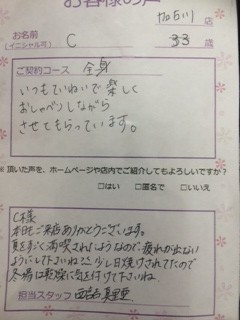 お客様の声
加古川 店
お名前
(イニシャル可)
C
33 歳
ご契約コース 全身
いつもていねいで楽しく
おしゃべりしながら
させてもらっています。
※頂いた声を、ホームページや店内でご紹介してもよろしいですか？
□はい □匿名で □いいえ
C様
本日もご来店ありがとうございます。
夏をすごく満喫されたようなので、疲れが出ない
ようにして下さいね。少し日焼けされてたので
冬場は乾燥に気を付けて下さいね。
担当スタッフ